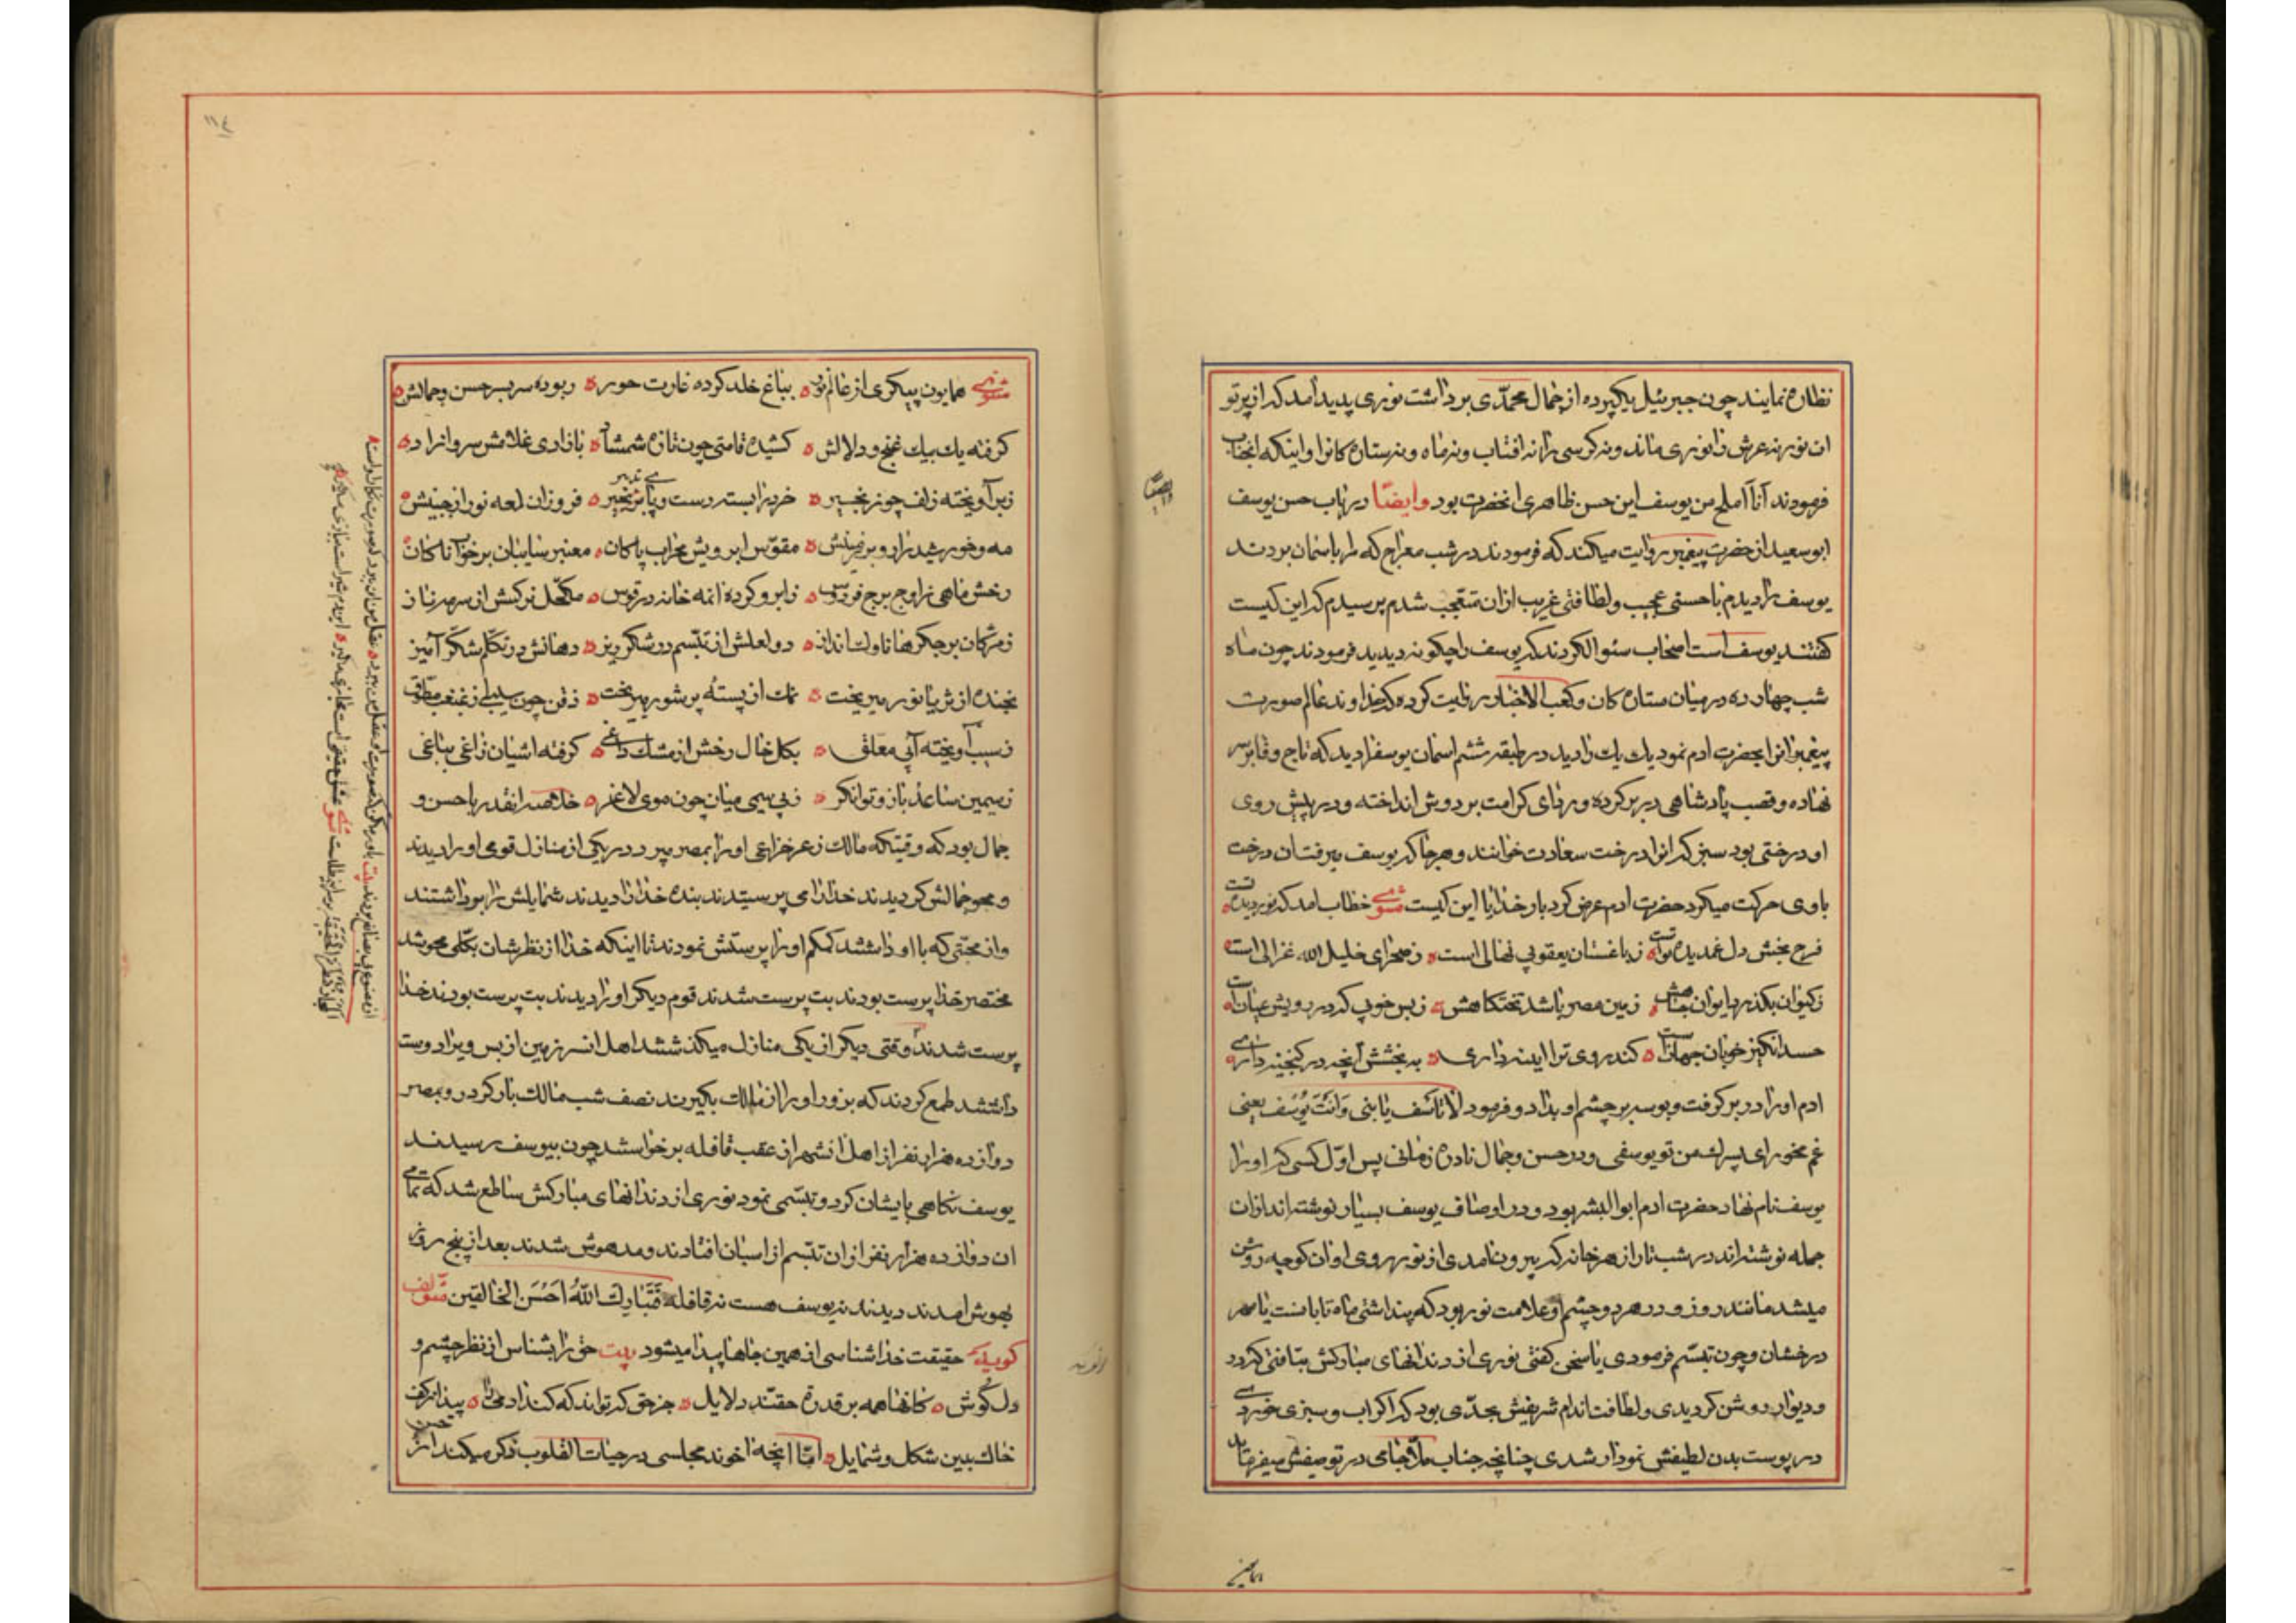 نظاره نمایند چون جبرئیل یکپرده از جمال محمدی برداشت نوری پدید آمد که از پرتو
ان نور نه عرش را نوری ماند و نه کرسی را نه افتاب و نه ماه و نه ستاره کانرا و اینکه انجناب
فرمودند انا املح من یوسف این حسن ظاهری انحضرت بود وایضا در باب حسن یوسف
ابو سعید از حضرت پیغمبر روایت میکند که فرمودند در شب معراج که مرا باسمان بردند
یوسف را دیدم با حسنی عجیب و لطافتی غریب ازان متعجب شدم پرسیدم که این کیست
کفتند یوسف است اصحاب سئوال کردند که یوسف را چکونه دیدید فرمودند چون ماه
شب چهارده در میان ستاره کان و کعب الاخبار روایت کرده که خداوند عالم صورت
پیغمبرانرا بحضرت ادم نمود یك یك را دید در طبقه ششم اسمان یوسفرا دید که تاج وقار بر سر
نهاده و قصب پادشاهی در بر کرده و ردای کرامت بر دوش انداخته و در پیش روی
او درختی بود سبز که انرا درخت سعادت خوانند و هر جا که یوسف میرفت ان درخت
با وی حرکت میکرد حضرت ادم عرض کرد بار خدایا این کیست مثنوی خطاب امد که نور دیده تست
فرح بخش دل غمدیده تست ز باغستان یعقوبی نهالی است ز صحرای خلیل الله غزالی است
ز کیوان بکذرد ایوان جاهش زمین مصر باشد تختکاهش ز بس خوبی که در رویش عیان است
حسد انکیز خوبان جهان است کند روی ترا اینه داری به بخشش انچه در کنجینه داری
ادم او را در بر کرفت و بوسه بر چشم او بداد و فرمود لا تاسف یا بنی وانت یوسف یعنی
غم مخور ای پسرك من تو یوسفی و در حسن و جمال نادره زمانی پس اول کسی که او را
یوسف نام نهاد حضرت ادم ابو البشر بود و در اوصاف یوسف بسیار نوشته اند ازان
جمله نوشته اند در شب تار از هر خانه که بیرون امدی از نور روی او ان کوچه روشن
میشد مانند روز و در هر دو چشم او علامت نور بود که پنداشتی ماه تابانست یا مهر
درخشان و چون تبسم فرمودی یا سخن کفتی نوری از دندانهای مبارکش بتافتی که در
و دیوار روشن کردیدی و لطافت اندام شریفش بحدی بود که اکر اب و سبزی خوردی
در پوست بدن لطیفش نمودار شدی چنانچه جناب ملا جامی در توصیفش میفرماید
ایضا
مثنوی همایون پیکری از عالم نور بباغ خلد کرده غارت حور ربوده سر بسر حسن و جمالش
کرفته یك بیك غنج و دلالش کشیده قامتی چون تازه شمشاد بازادی غلامش سرو ازاد
زبر آویخته زلف چو زنجیر خرد را بسته دست و پای تدبیر فروزان لمعه نور از جبینش
مه و خورشید را رو بر زمینش مقوس ابرویش محراب پاکان معنبر سایبان بر خواب ناکان
رخش ماهی ز اوج برج فردوس ز ابرو کرده انمه خانه در قوس مکحل نرکسش از سرمه ناز
ز مژکان بر جکرها ناوك انداز دو لعلش از تبسم در شکر ریز دهانش در تکلم شکر آمیز
بخنده از ثریا نور میریخت نمك از پسته پر شور میریخت ذقن چون سیبی از غبغب مطوق
ز سیب آویخته آبی معلق بکل خال رخش از مشك داغی کرفته اشیان زاغی بباغی
ز سیمین ساعد بازو توانکر ز بی سیمی میان چون موی لاغر خلاصه انقدر با حسن و
جمال بود که وقتیکه مالك زعر خزاعی او را بمصر میبرد در یکی از منازل قومی او را دیدند
و محو جمالش کردیدند خدا را می پرستیدند بنده خدا را دیدند شمایلش را برداشتند
و از محبتی که با او داشتند کم کم او را پرستش نمودند تا اینکه خدا از نظرشان بکلی محو شد
مختصر خدا پرست بودند بت پرست شدند قوم دیکر او را دیدند بت پرست بودند خدا
پرست شدند وقتی دیکر از یکی منازل میکذشتند اهل انسرزمین از بس ویرا دوست
داشتند طمع کردند که بزور او را از مالك بکیرند نصف شب مالك بار کرد رو بمصر
دوازده هزار نفر از اهل انشهر از عقب قافله برخواستند چون بیوسف رسیدند
یوسف نکاهی بایشان کرد و تبسمی نمود نوری از دندانهای مبارکش ساطع شد که تمامی
ان دوازده هزار نفر از ان تبسم از اسبان افتادند و مدهوش شدند بعد از پنج روز
بهوش امدند دیدند نه یوسف هست نه قافله فتبارك الله احسن الخالقین مؤلف
کوید حقیقت خدا شناسی از همین جاها پیدا میشود بیت حق را بشناس از نظر چشم و
دل کوش کانها همه بر قدرة حقند دلایل جز حق که تواند که کند ادمی را پیدا ز کف
خاك ببین شکل و شمایل اما انچه اخوند مجلسی در حیات القلوب ذکر میکند از